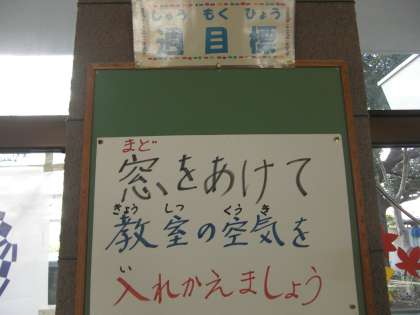 しゅうもくひょう
週目標
まど
窓をあけて
きょうしつ くうき
教室の空気を
い
入れかえましょう